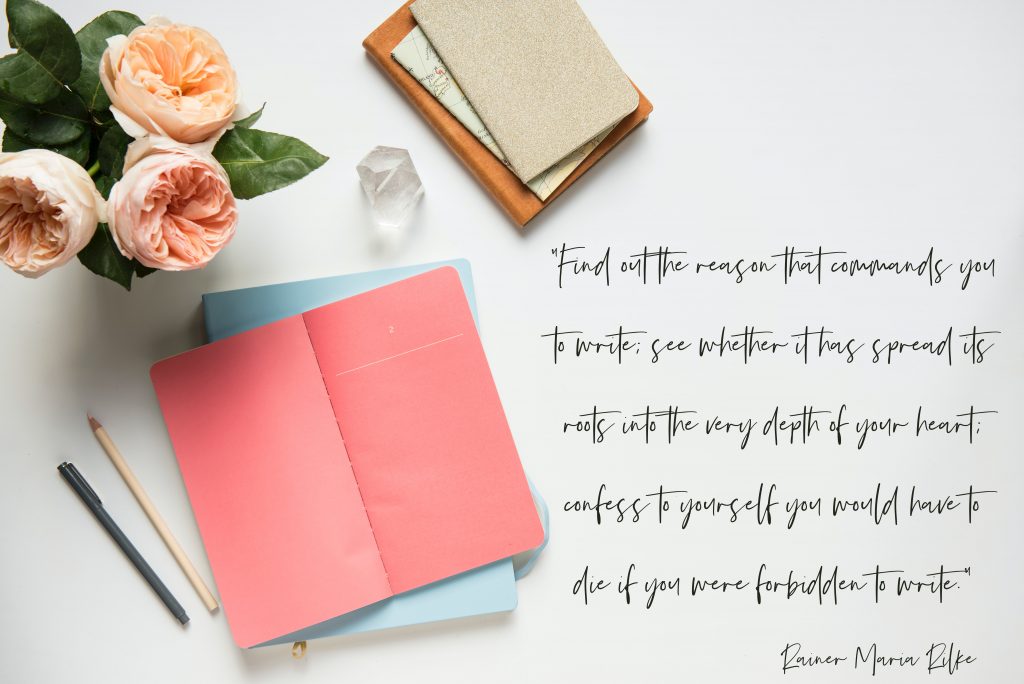 2
"Find out the reason that commands you
to write; see whether it has spread its
roots into the very depth of your heart;
confess to yourself you would have to
die if you were forbidden to write."
Rainer Maria Rilke